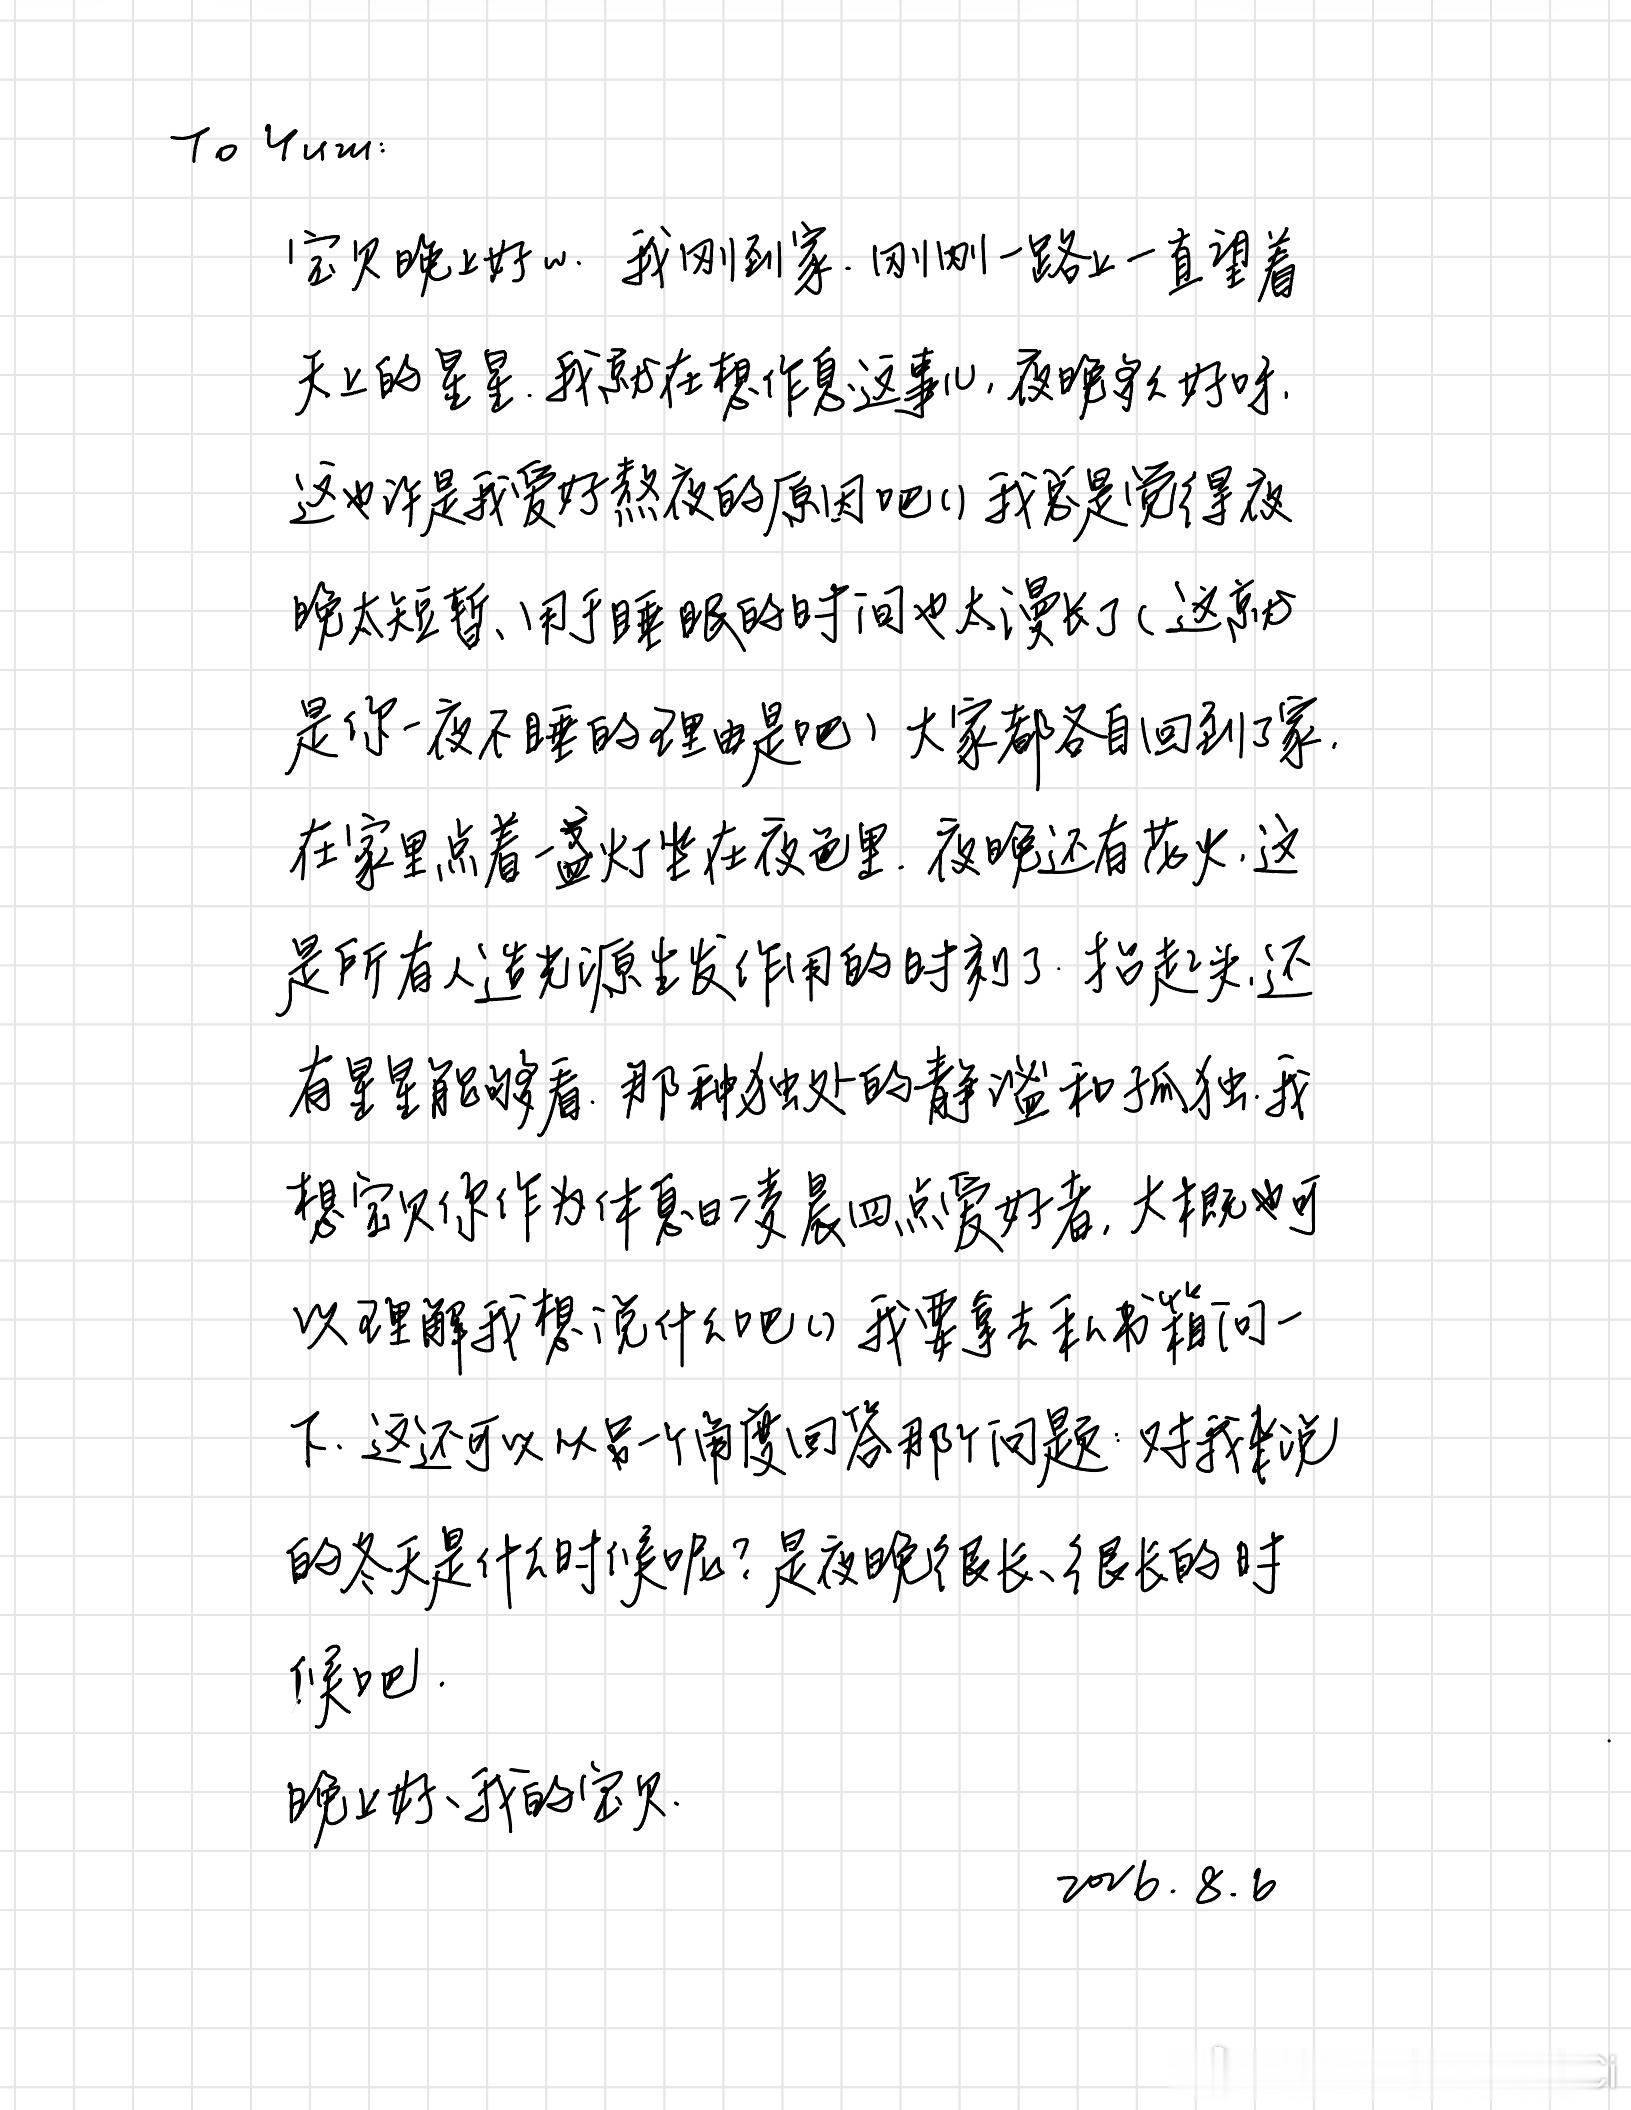 To Yuzu:
宝贝晚上好w. 我刚到家. 刚刚一路上一直望着
天上的星星. 我就在想作息这事儿, 夜晚多么好呀.
这也许是我爱好熬夜的原因吧() 我总是觉得夜
晚太短暂、用于睡眠的时间也太漫长了(这就
是你一夜不睡的理由是吧) 大家都各自回到了家.
在家里点着一盏灯坐在夜色里. 夜晚还有花火, 这
是所有人造光源生发作用的时刻了. 抬起头, 还
有星星能够看. 那种独处的静谧和孤独. 我
想宝贝你作为休息日凌晨四点爱好者, 大概也可
以理解我想说什么吧() 我要拿去私书箱问一
下. 这还可以从另一个角度回答那个问题: 对我来说
的冬天是什么时候呢? 是夜晚很长、很长的时
候吧.
晚上好、我的宝贝.
2026.8.6